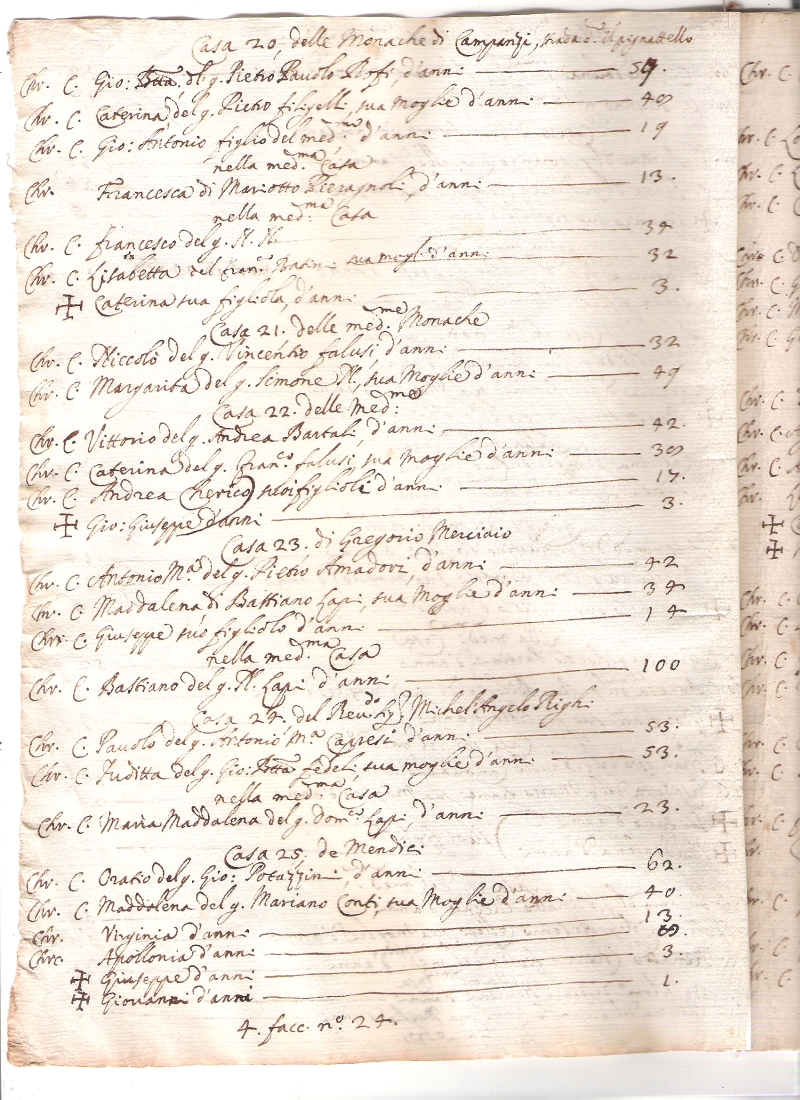 Casa 20, delle Monache di Campanzi, strada d.a
Chr. C. Gio: Btta, del q. Pietro Pavolo Rofi, d'anni 59.
Chr. C. Caterina, del q. Pietro filigelli, sua moglie d'anni 40
Chr. C. Gio: Antonio figlio del med.mo d'anni 19
nella med.ma Casa
Chr. Francesca di Mariotto Pieragnoli, d'anni 13.
nella med.ma Casa
Chr. C. Francesco del q. N. N. 34
Chr. C. Lisabetta del fran.co sua mogl. d'anni 32
✠ Caterina sua figliola, d'anni 3.
Casa 21. delle med.me Monache
Chr. C. Niccolò del q. Vincentio falusi d'anni 32
Chr. C. Margarita del q. Simone N., sua Moglie d'anni 49
Casa 22. delle Med.me
Chr. C. Vittorio del q. Andrea Bartali, d'anni 42.
Chr. C. Caterina del q. Fran.co falusi, sua moglie d'anni 30
Chr. C. Andrea Cherico) suoi figlioli d'anni 17.
✠ Gio: Giuseppe d'anni 3.
Casa 23. di Gregorio Merciaio
Chr. C. Antonio M.a del q. Pietro Amadori, d'anni 42
Chr. C. Maddalena di Bastiano Lapi, sua Moglie d'anni 34
Chr. C. Giuseppe suo figliolo d'anni 14
nella med.ma Casa
Chr. C. Bastiano del q. N. Lapi d'anni 100
Casa 24. del Rev.do Michel'Angelo Righi
Chr. C. Pavolo del q. Antonio M.a Capresi d'anni 53.
Chr. C. Iuditta del q. Gio: Btta fedeli, sua moglie d'anni 53.
nella med.ma Casa
Chr. C. Maria Maddalena del q. Dom.co Lapi, d'anni 23.
Casa 25, de Mendici
Chr. C. Oratio del q. Gio: Potazzini, d'anni 62.
Chr. C. Maddalena del q. Mariano Conti, sua Moglie d'anni 40.
Chr. Virginia d'anni 13.
Chr. Apollonia d'anni
✠ Giuseppe d'anni 3.
✠ Giovanni d'anni 1.
4. facc. n.o 24.